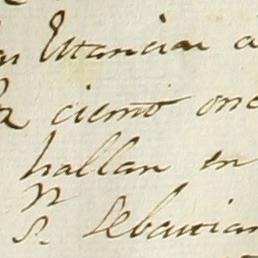 Estancia a
ciento onc
hallan en
S.n Sebastian